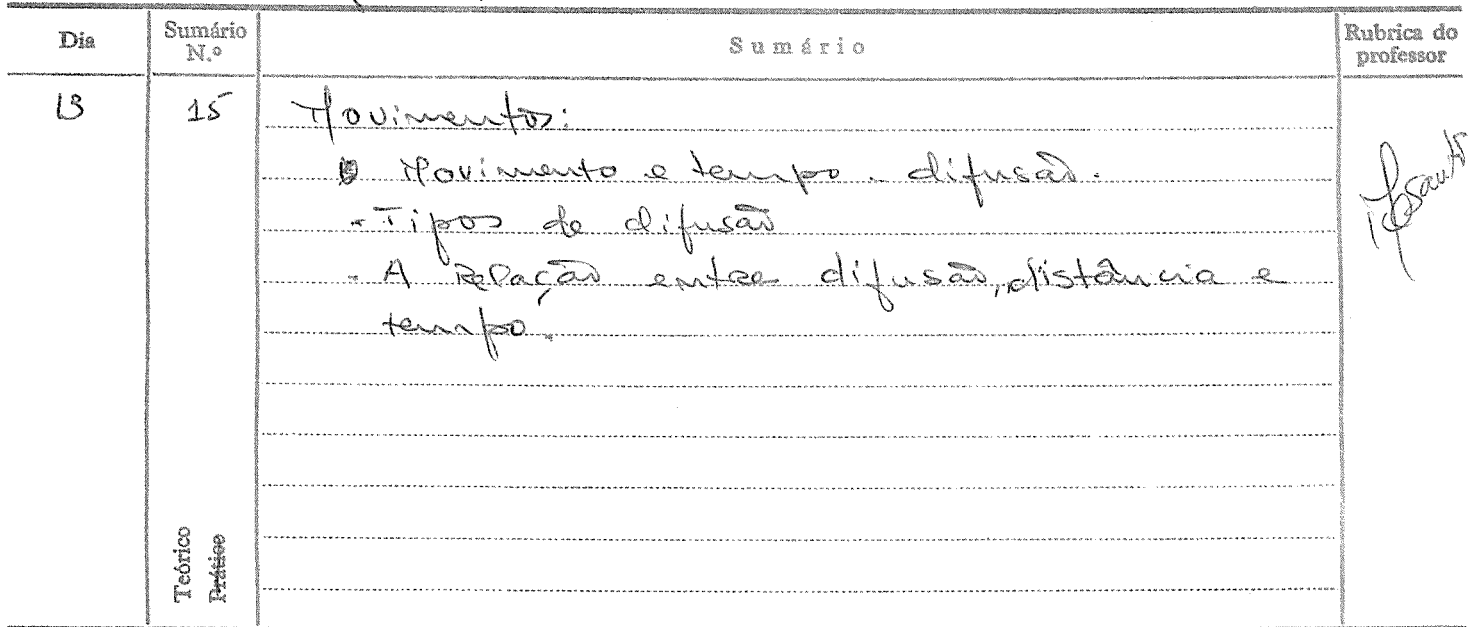 Dia Sumário N.º Sumário Rubrica do professor
13 15 Movimentos:
Movimento e tempo - difusão.
- Tipos de difusão
- A Relação entre difusão, distância e
tempo.
Teórico
Prático